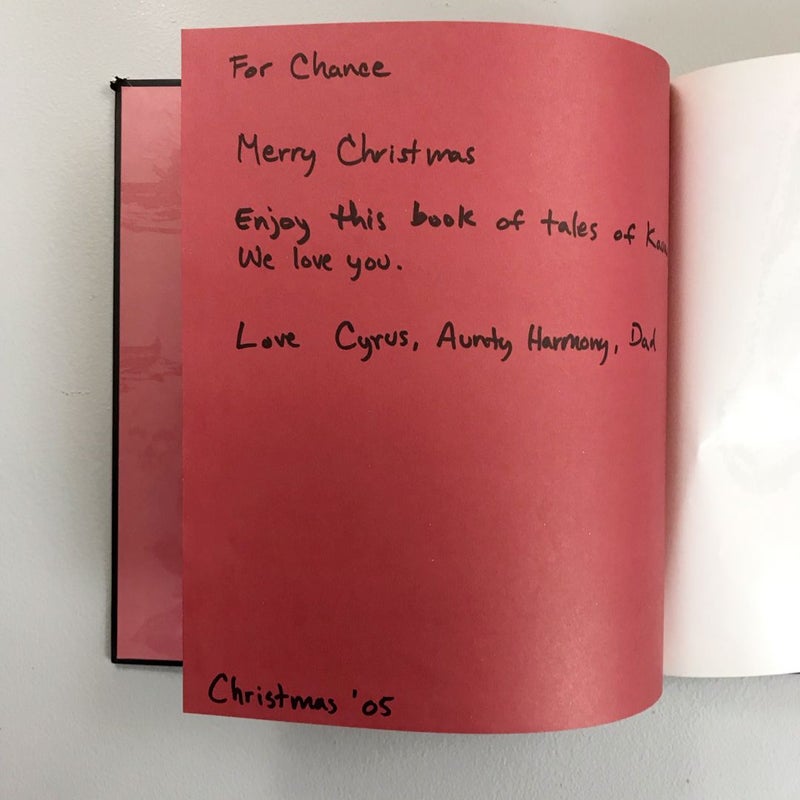 For Chance
Merry Christmas
Enjoy this book of tales of
We love you.
Love Cyrus, Aunty Harmony, Dad
Christmas '05